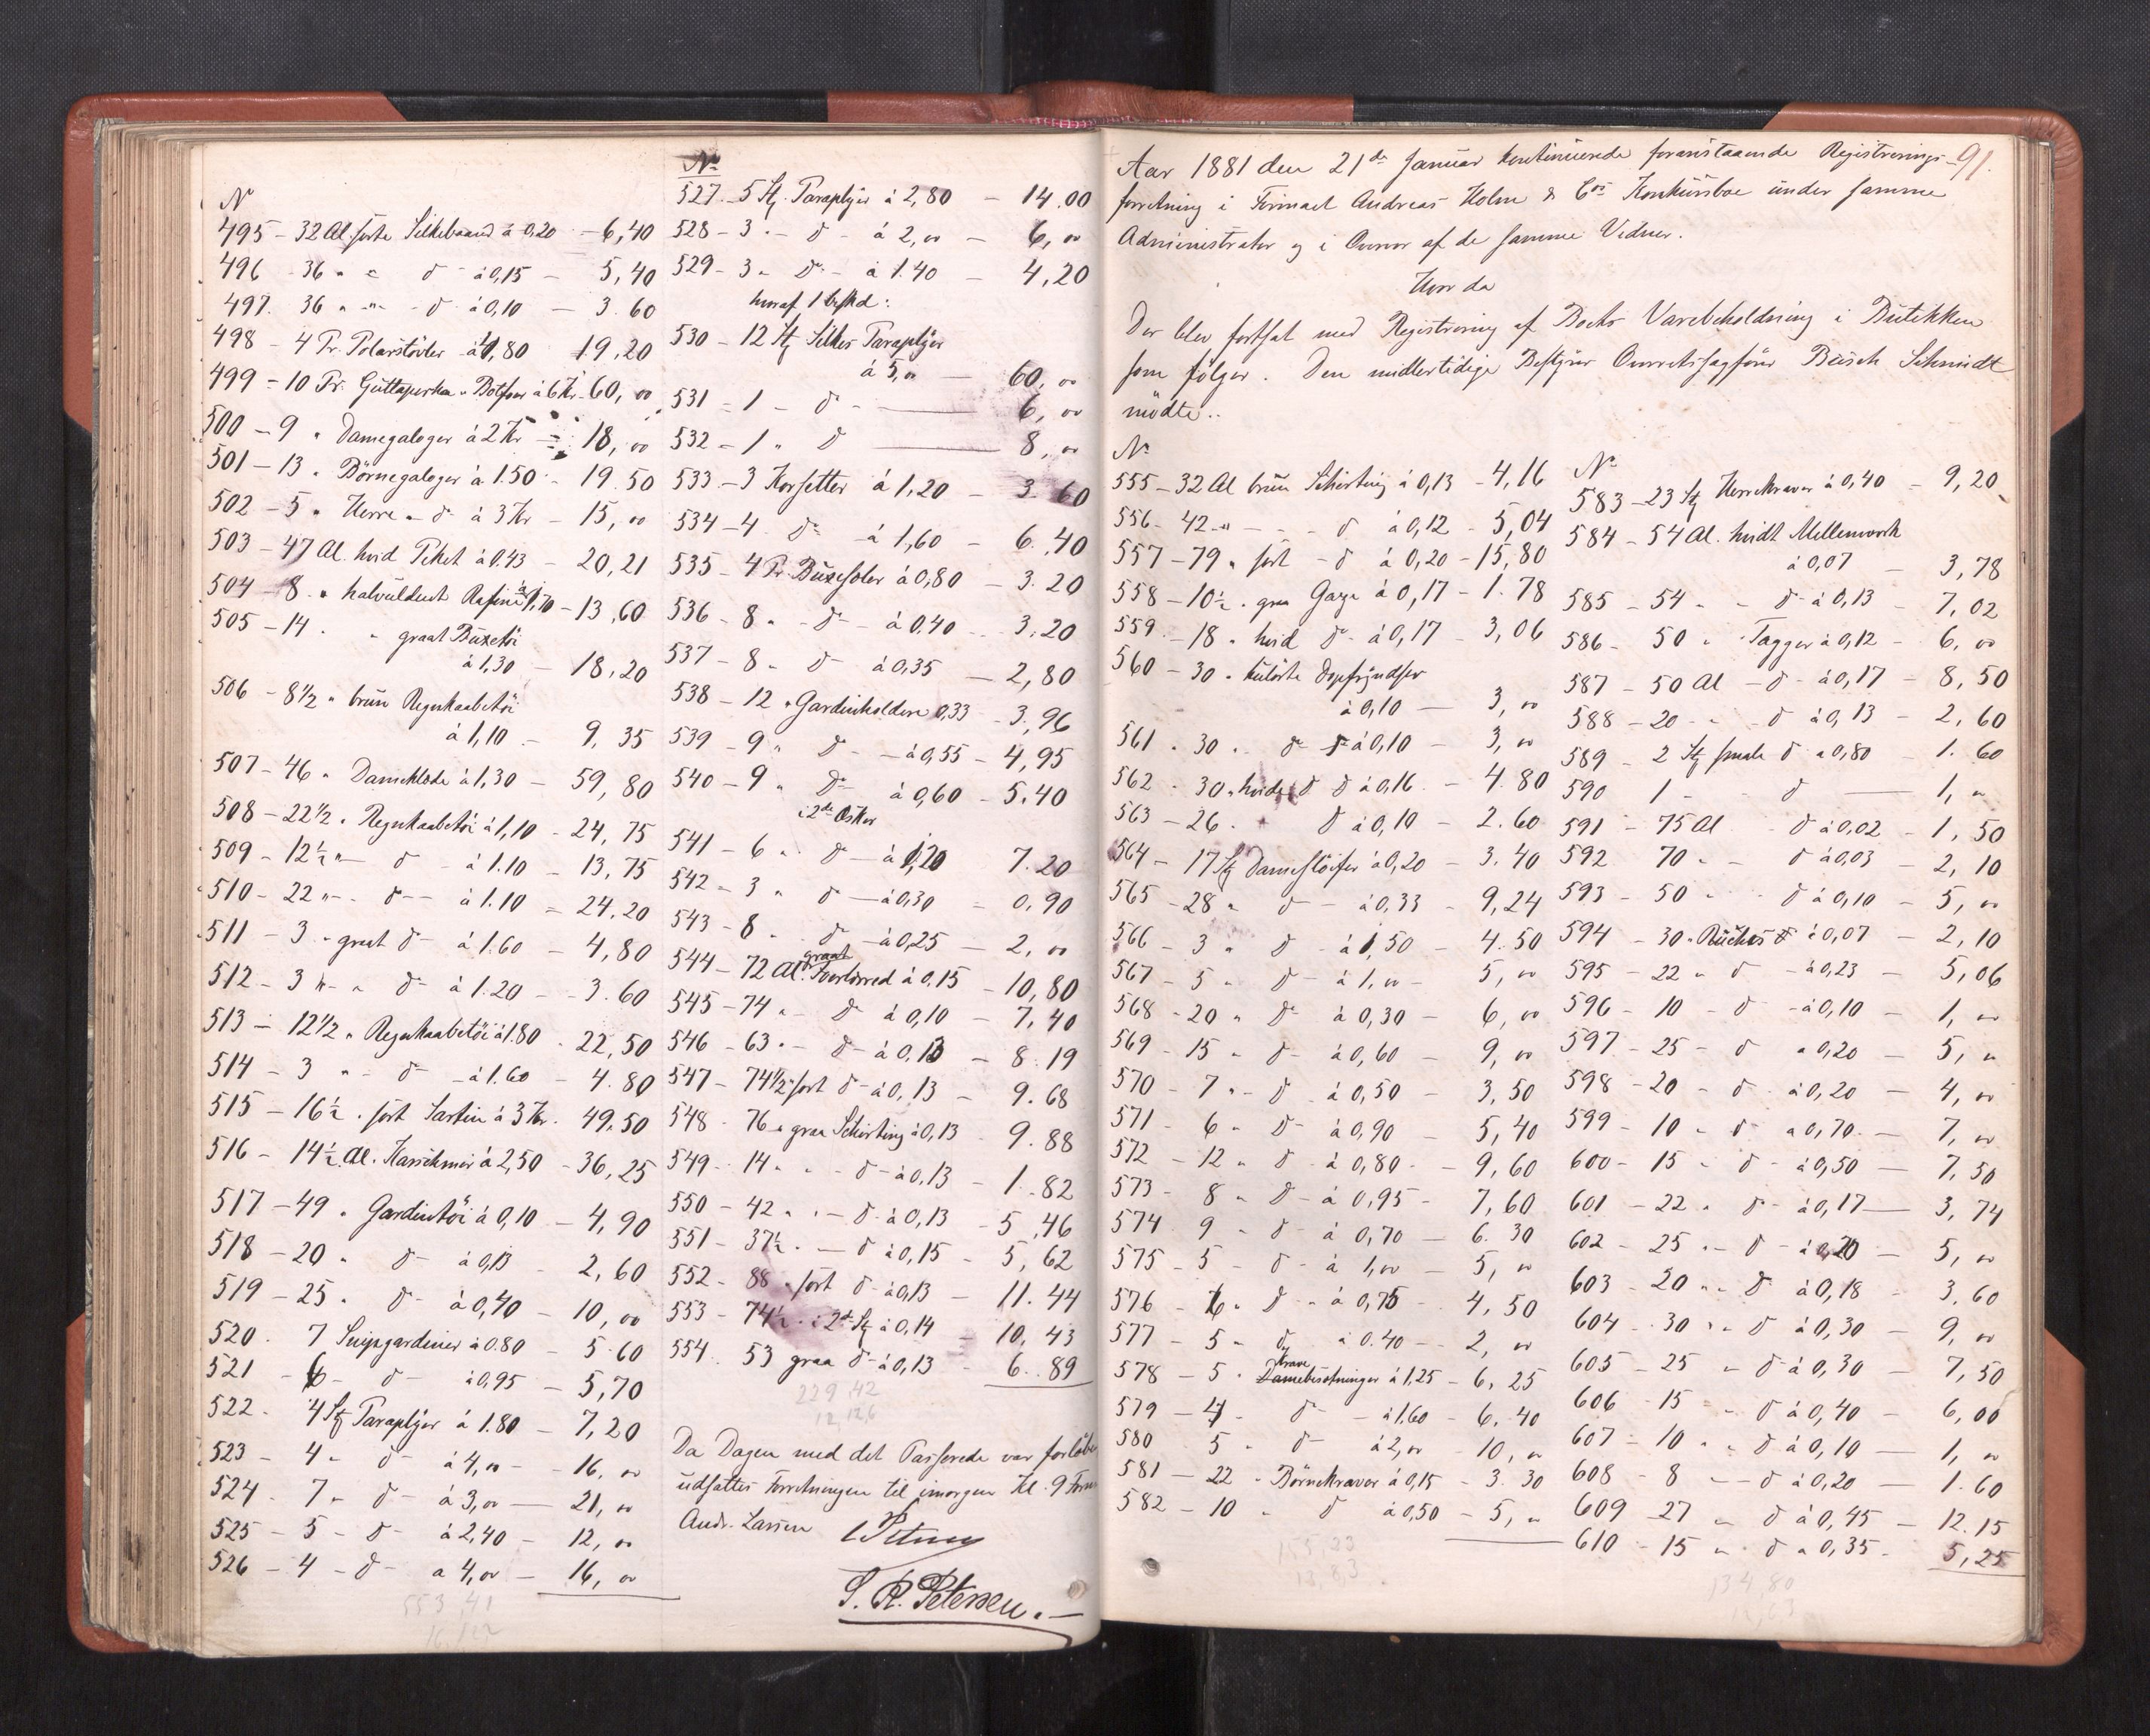 N
495 - 32 Al. sorte Silkebaand à 0,20 - 6,40
496 - 36 " " do à 0,15 - 5,40
497. 36 " " - do à 0,10 - 3.60
498 - 4 Pr. Polarstøvler à 4,80 19,20
499 - 10 Pr. Guttaperka " Botforer à 6 Kr - 60, 00
500 - 9 " Damegaloger à 2 Kr - 18, 00
501 - 13 " Börnegaloger à 1.50 - 19.50
502 - 5 " Herre - do à 3 Kr - 15, 00
503 - 47 Al. hvid Piket à 0.43 - 20,21
504 - 8 " halvuldent Rafiné à 1,70 - 13,60
505 - 14 " " graat Buxetöi
à 1,30 - 18,20
506 - 8 1/2 " brun Regnkaabetöi
à 1,10 - 9, 35
507 - 46 " Dameklæde à 1,30 - 59, 80
508 - 22 1/2 " Regnkaabetöi à 1,10 - 24, 75
509 - 12 1/2 " - do - à 1.10 - 13, 75
510 - 22 " - do - à 1.10 - 24.20
511 - 3 " graat do - à 1.60 - 4,80
512 - 3 " - " do - à 1.20 - 3.60
513 - 12 1/2 " Regnkaabetöi à 1.80 - 22,50
514 - 3 " - do - à 1.60 - 4.80
515 - 16 1/2 " sort Sartin à 3 Kr. 49.50
516 - 14 1/2 Al. Kaschmir à 2,50 - 36,25
517 - 49 " Gardintöi à 0,10 - 4,90
518 - 20 " do - à 0,13 - 2,60
519 - 25 " do - à 0,40 - 10, 00
520. 7 Snipgardiner à 0.80 - 5.60
521 - 6 - do - à 0,95 - 5,70
522. 4 Stk Paraplyer à 1.80 - 7,20
523 - 4 " do - à 4,00 - 16, 00
524. 7 " do - à 3,00 - 21, 00
525 - 5 - do - à 2,40 - 12, 00
526 - 4 - do - a 4,00 - 16, 00
553,41
No
527 - 5 Stk. Paraplyer à 2,80 - 14.00
528 - 3 " - do - à 2,00 - 6, 00
529 - 3 " do - à 1.40 - 4,20
hvoraf 1 beskd:
530 - 12 Stk Silkes Paraplyer
à 5,00 - 60, 00
531 - 1 - do - 6, 00
532 - 1 " do 8, 00
533 - 3 Korsetter à 1,20 - 3.60
534 - 4 do - à 1,60 - 6.40
535 - 4 Pr. Buxeseler à 0,80 - 3.20
536 - 8 " - do - à 0.40 - 3.20
537 - 8 " do - à 0,35 - 2,80
538 - 12 " Gardinholdere 0,33 - 3,96
539 - 9 " do - à 0,55 - 4,95
540 - 9 " do à 0,60 - 5.40
i 2de Æsker
541 - 6 " do - à 1,20 7.20
542 - 3 " do - à 0,30 - 0,90
543 - 8 " do - à 0,25 - 2, 00
544 - 72 Al. graat Foerlærred à 0.15 - 10,80
545 - 74 " - do à 0,10 - 7,40
546 - 63 " - do - à 0,13 - 8.19
547 - 74 1/2 " sort do - à 0,13 - 9.68
548 - 76 " graa Schirting à 0,13 - 9.88
549 - 14 " " - do - à 0.13 - 1.82
550 - 42 " " - do à 0,13 - 5,46
551 - 37 1/2 " - do à 0,15 - 5,62
552 - 88 " sort do - à 0,13 - 11.44
553 - 74 1/2 " i 2de Stk à 0,14 - 10,43
554. 53 graa do - à 0,13 - 6.89
229,42
Da Dagen med det Passerede var forløben
udsattes Forretningen til imorgen Kl. 9 Form
Andr. Larsen
S. R. Petersen.
91.
Aar 1881 den 21de Januar kontinuerede foranstaaende Registrerings-
forretning i Firmaet Andreas Holm & Cos Konkursboe under samme
Administrator og i Overvær af de samme Vidner.
Hvor da
Der blev fortsat med Registrering af Boets Varebeholdning i Butikken
som følger. Den midlertidige Bestyrer Overretssagfører Busch Schmidt
mödte..
No
555 - 32 Al brun Schirting à 0,13 - 4,16
556 - 42 " - - do à 0,12 - 5,04
557 - 79 " sort - do à 0,20 - 15,80
558 - 10 1/2 " graa Gaze à 0,17 - 1.78
559 - 18 " hvid do - à 0,17 - 3,06
560 - 30 " kulörte Dopfryndser
à 0,10 - 3, 00
561 - 30 " do à 0,10 - 3, 00
562 - 30 " hvide do à 0,16 - 4.80
563 - 26 " do à 0,10 - 2.60
564 - 17 Stk Dameslöifer à 0,20 - 3.40
565 - 28 " do - à 0,33 - 9,24
566 - 3 " do - à 1,50 - 4.50
567 - 5 " do - à 1,00 - 5, 00
568 - 20 " do - à 0,30 - 6, 00
569 - 15 " do - à 0,60 - 9, 00
570 - 7 " - do - à 0,50 - 3,50
571 - 6 " do - à 0,90 - 5,40
572 - 12 " do - à 0,80 - 9,60
573 - 8 " do - à 0,95 - 7,60
574 - 9 " do - à 0,70 - 6.30
575 - 5 - do - à 1,00 - 5, 00
576 - 6 " do - à 0,75 - 4,50
577 - 5 " do à 0.40 - 2, 00
578 - 5 " Damekravebesetninger à 1,25 - 6,25
579 - 4 " do - à 1.60 - 6.40
580 5 " do - à 2,00 - 10, 00
581 - 22 " Börnekraver à 0,15 - 3.30
582 - 10 " do à 0,50 - 5, "
No
583 - 23 Stk Herrekraver à 0,40 - 9,20
584 - 54 Al. hvidt Mellemverk
à 0,07 - 3,78
585 - 54 " - do - à 0,13 - 7,02
586 - 50 " Tagger à 0,12 - 6, 00
587 - 50 Al - do - à 0,17 - 8,50
588 - 20 - " - do à 0,13 - 2,60
589 - 2 Stk smale do à 0,80 - 1.60
590 1 - - do - 1, "
591 - 75 Al do à 0,02 - 1,50
592 70 " - do à 0.03 - 2,10
593 - 50 " do à 0,10 - 5, 00
594 - 30 " Ruches à 0,07 - 2,10
595 - 22 " do - à 0,23 - 5,06
596 - 10 - do - à 0,10 - 1, 00
597 - 25 - do à 0,20 - 5, "
598 - 20 - do - à 0,20 - 4, 00
599 - 10 - do - a 0,70 - 7, 00
600 - 15 " do - à 0,50 - 7,50
601 - 22 " do - à 0,17 - 3,74
602 - 25 " - do - à 0,20 - 5, 00
603 - 20 " - do à 0,18 - 3,60
604 - 30 " - do à 0,30 - 9, 00
605 - 25 " do à 0,30 - 7,50
606 - 15 - " do à 0,40 - 6,00
607 - 10 " " do à 0,10 - 1, 00
608 - 8 " - do à 0,20 - 1.60
609 - 27 " do à 0,45 - 12.15
610 - 15 " do a 0,35 - 5,25
134,80